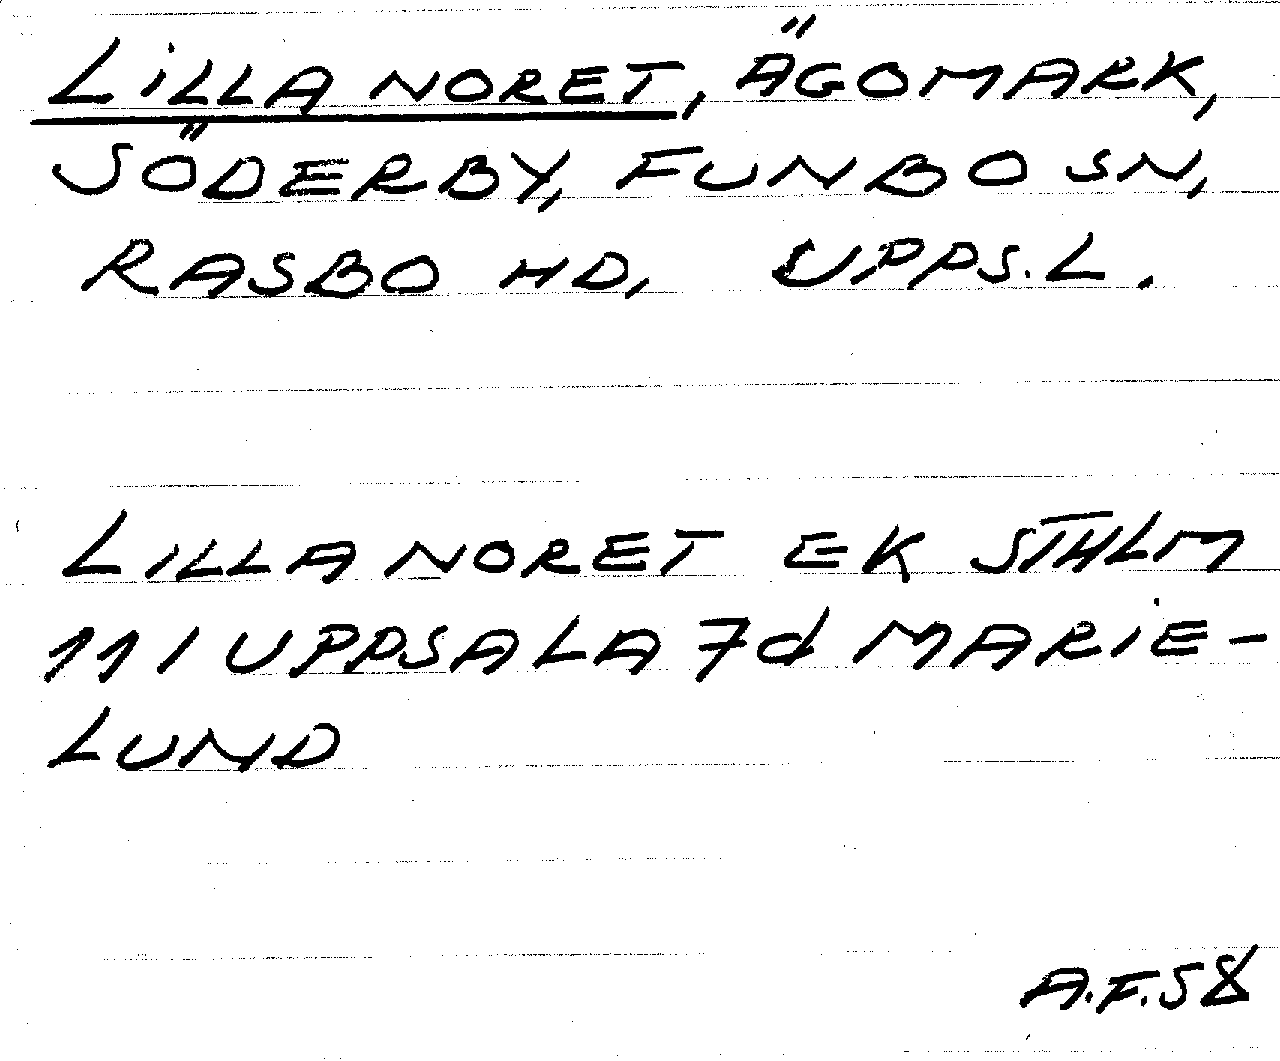 LILLA NORET, ÄGOMARK,
SÖDERBY, FUNBO SN,
RASBO HD, UPPS.L.
LILLA NORET EK STHLM
111 UPPSALA 7d MARIE-
LUND
A.F.58